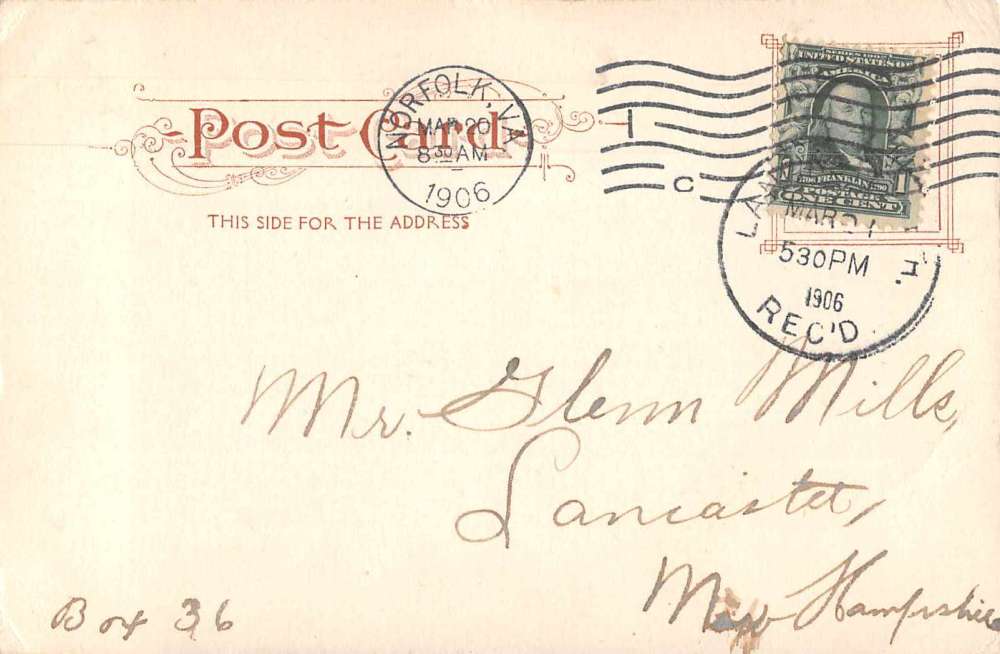 Post Card
THIS SIDE FOR THE ADDRESS
NORFOLK, VA.
MAR 20
8 30 AM
1906
1
C
SERIES 1902
UNITED STATES OF
AMERICA
FRANKLIN
1
POSTAGE
ONE CENT
MAR 21
5 30 PM
1906
REC'D
Mr. Glenn Mills,
Lancaster,
New Hampshire
Box 36